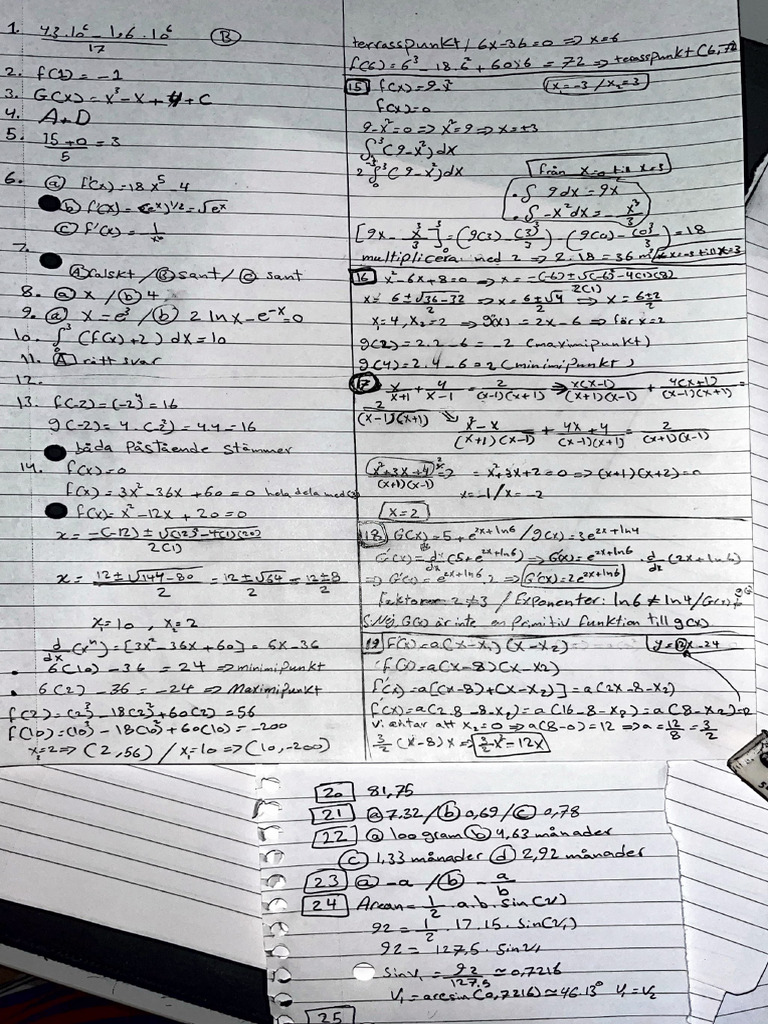 1. 43·10⁶ − 1,6·10⁶ / 17 (B)
2. f(1) = −1
3. G(x) = x³ − x + 4 + C
4. A+D
5. 15+0 / 5 = 3
6. (a) f'(x) = 18x⁵ − 4
(b) f'(x) = (eˣ)^1/2 = √eˣ
(c) f'(x) = 1/
7.
(A) falskt / (B) sant / (C) sant
8. (a) x / (b) 4
9. (a) x = e³ / (b) 2 ln x − e⁻ˣ = 0
10. ∫³ (f(x) + 2) dx = 10
11. (A) rätt svar
12.
13. f(-2) = (-2)⁴ = 16
g(-2) = 4·(-2²) = 4·4 = 16
båda Påstående stämmer
14. f(x) = 0
f(x) = 3x² − 36x + 60 = 0 hela dela med (3)
f(x) = x² − 12x + 20 = 0
x = −(−12) ± √(12)² − 4(1)(20) / 2(1)
x = 12 ± √144 − 80 / 2 = 12 ± √64 / 2 = 12 ± 8 / 2
x₁ = 10, x₂ = 2
d/dx (xⁿ) = [3x² − 36x + 60] = 6x − 36
• 6(10) − 36 = 24 ⇒ minimipunkt
• 6(2) − 36 = −24 ⇒ Maximipunkt
f(2) = (2)³ − 18(2)² + 60(2) = 56
f(10) = (10)³ − 18(10)² + 60(10) = −200
x₂ = 2 ⇒ (2, 56) / x₁ = 10 ⇒ (10, −200)
terrasspunkt / 6x − 36 = 0 ⇒ x = 6
f(6) = 6³ − 18·6² + 60×6 = 72 ⇒ terasspunkt (6, 72
15 f(x) = 9 − x² x₁ = −3 / x₂ = 3
f(x) = 0
9 − x² = 0 ⇒ x² = 9 ⇒ x = ±3
∫³ (9 − x²) dx
2 ∫₀³ (9 − x²) dx från x=0 till x=3
• ∫ 9 dx = 9x
• ∫ −x² dx = − x³/3
[9x − x³/3]₀³ = (9(3) − (3)³/3) − (9(0) − (0)³/3) = 18
multiplicera med 2 ⇒ 2·18 = 36 m²
16 x² − 6x + 8 = 0 ⇒ x = −(−6) ± √(−6)² − 4(1)(8) / 2(1)
x = 6 ± √36 − 32 / 2 ⇒ x = 6 ± √4 / 2 ⇒ x = 6 ± 2 / 2
x₁ = 4, x₂ = 2 ⇒ g'(x) = 2x − 6 ⇒ för x = 2
g(2) = 2·2 − 6 = −2 (maximipunkt)
g(4) = 2·4 − 6 = 2 (minimipunkt)
17 x/x+1 + 4/x−1 = 2/(x−1)(x+1) ⇒ x(x−1)/(x+1)(x−1) + 4(x+1)/(x−1)(x+1) =
2/(x−1)(x+1) ⇒ x² − x/(x+1)(x−1) + 4x+4/(x−1)(x+1) = 2/(x+1)(x−1)
x² + 3x + 4/(x+1)(x−1) = x² + 3x + 2 = 0 ⇒ (x+1)(x+2) = 0
x = −1 / x = −2
x = 2
18 G(x) = 5 + e^2x+ln6 / g(x) = 3e^2x+ln4
G'(x) = d/dx (5 + e^2x+ln6) ⇒ G'(x) = e^2x+ln6 · d/dx (2x + ln6)
⇒ G'(x) = e^2x+ln6 · 2 ⇒ G'(x) = 2e^2x+ln6
Faktorer 2 ≠ 3 / Exponenter: ln6 ≠ ln4 / G'(x) ≠ g(x)
S: Nej, G(x) är inte en primitiv funktion till g(x)
19 f(x) = a(x − x₁)(x − x₂) y = 12x − 24
f(x) = a(x − 8)(x − x₂)
f'(x) = a[(x − 8) + (x − x₂)] = a(2x − 8 − x₂)
f'(x) = a(2·8 − 8 − x₂) = a(16 − 8 − x₂) = a(8 − x₂) = 12
Vi antar att x₂ = 0 ⇒ a(8 − 0) = 12 ⇒ a = 12/8 = 3/2
3/2 (x − 8)x ⇒ 3/2 x² − 12x
20 81,75
21 (a) 7.32 / (b) 0,69 / (c) 0,78
22 (a) 100 gram (b) 4,63 månader
(c) 1.33 månader (d) 2,92 månader
23 (a) −a / (b) − a/b
24 Arean = 1/2 · a·b·sin(v)
92 = 1/2 · 17·15·sin(v₁)
92 = 127,5 · sin v₁
sin v₁ = 92/127.5 ≈ 0,7216
v₁ = arcsin(0,7216) ≈ 46.13° v₁ = v₂
25